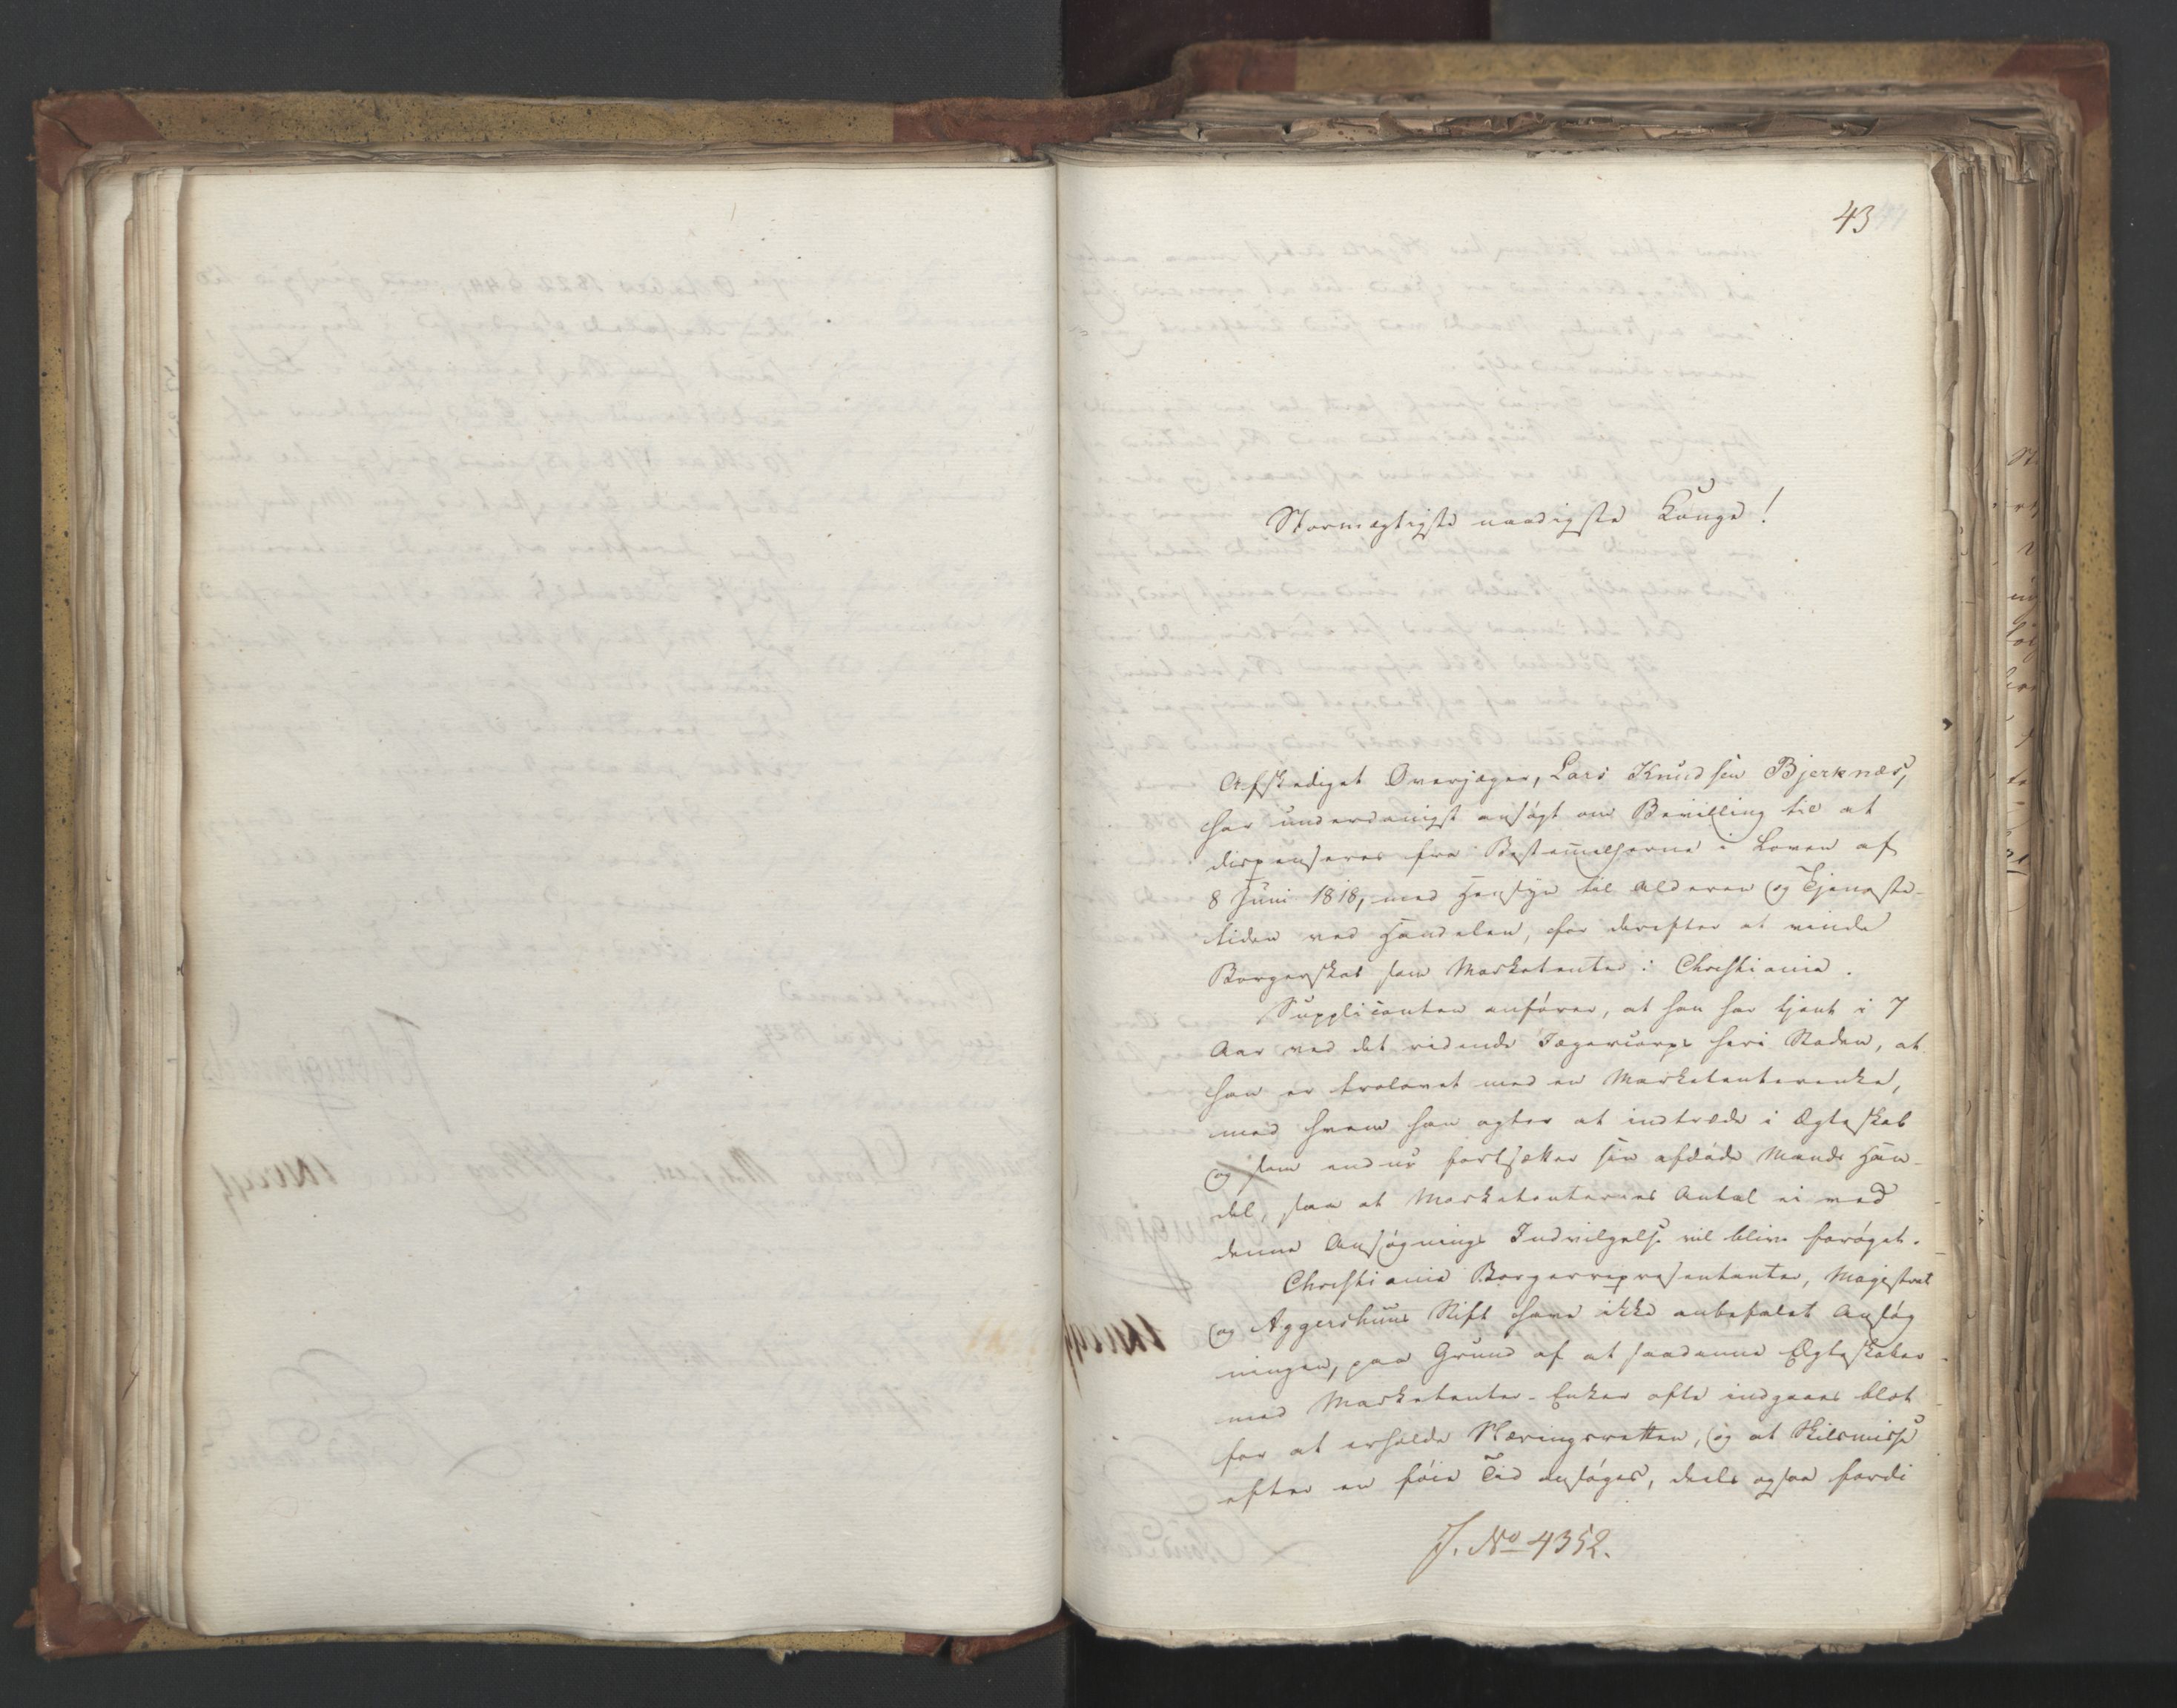 43
Stormægtigste naadigste Konge!
Afskediget Overjæger, Lars Knudsen Bjerknæs,
har underdanigst ansøgt om Bevilling til at
dispenseres fra Bestemelserne i Loven af
8 Juni 1818, med Hensyn til Alderen og Tjeneste-
tiden ved Handelen, for derefter at vinde
Borgerskab som Marketenter i Christiania.
Supplicanten anfører, at han har tjent i 7
Aar ved det ridende Jægercorps heri Staden, at
han er trolovet med en Marketenterenke,
med hvem han agter at indtræde i Ægteskab
og som endnu fortsætter sin afdøde Mands Han-
del, saa at Marketenternes Antal ei ved
denne Ansøgnings Indvilgelse vil blive forøget.
Christiania Borgerrepresentanter, Magistrat
og Aggershuus Stift have ikke anbefalet Ansøg
ningen, paa Grund af at saadanne Ægteskaber
med Marketenter-Enker ofte indgaaes blot
for at erholde Næringsretten, og at Skilsmisse
efter en føie Tid ansøges, deels ogsaa fordi
J. No 4352.